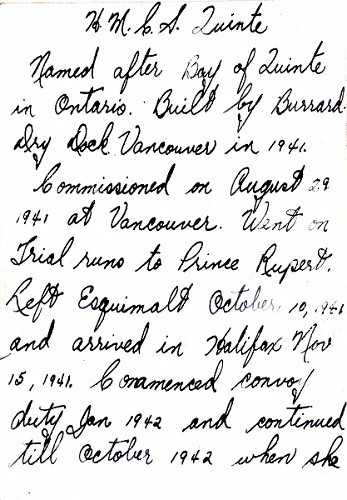 H.M.C.S. Quinte
Named after Bay of Quinte
in Ontario. Built by Burrard
Dry Dock Vancouver in 1941.
Commissioned on August 29
1941 at Vancouver. Went on
Trial runs to Prince Rupert.
Left Esquimalt October 10, 1941
and arrived in Halifax Nov
15, 1941. Commenced convoy
duty Jan 1942 and continued
till October 1942 when she